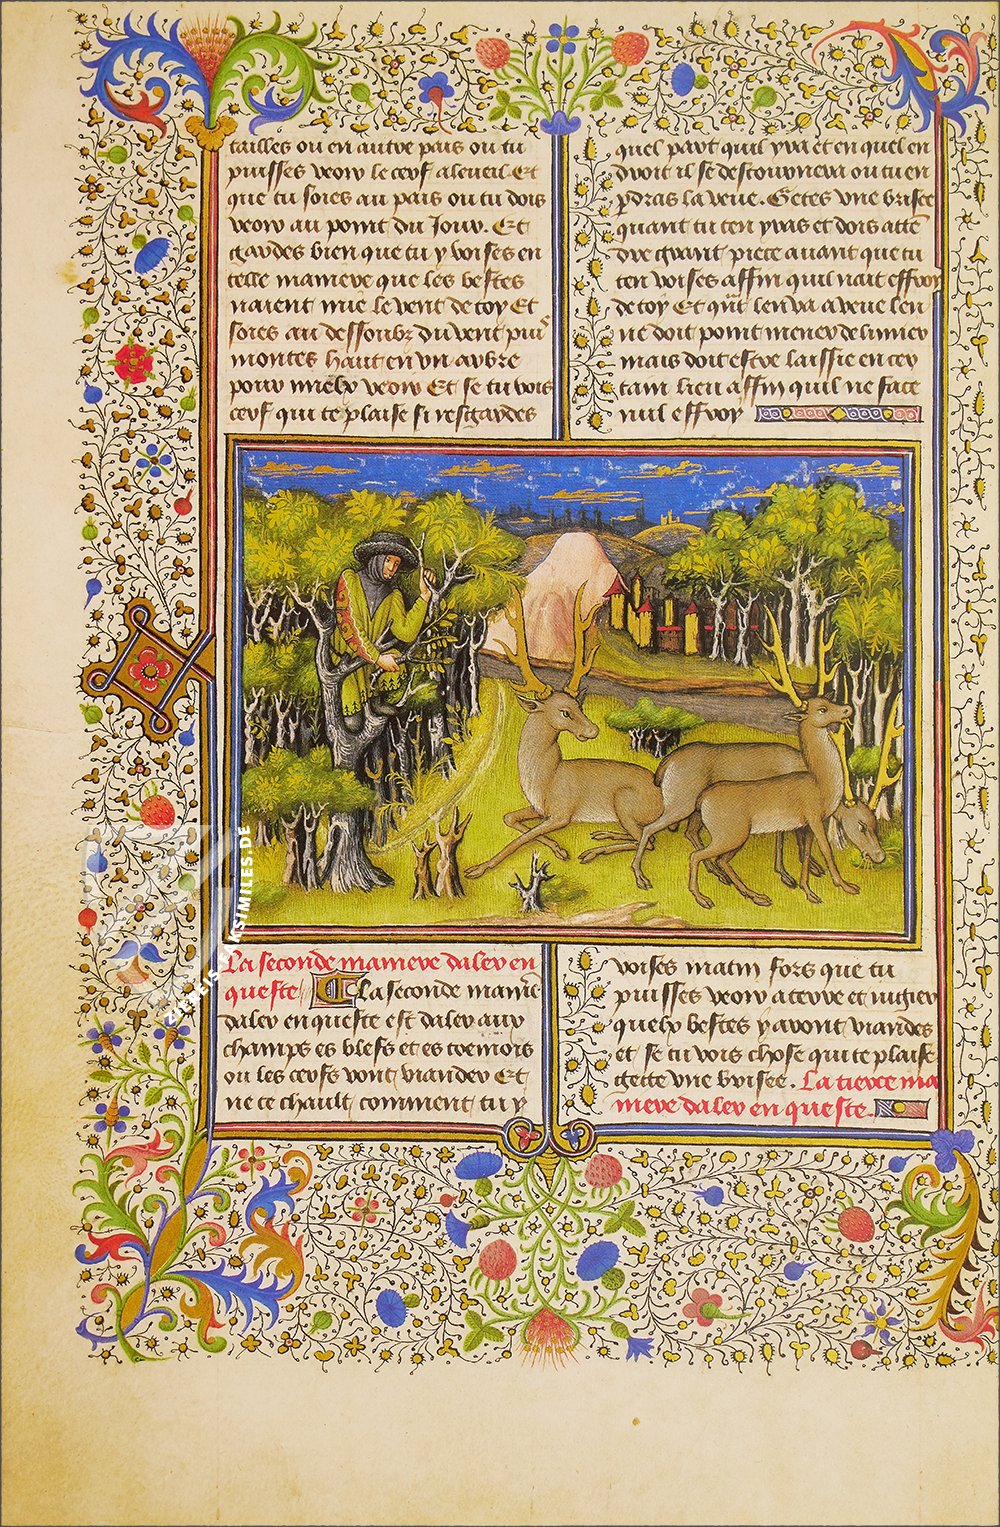 tailles ou en autre pais ou tu
puisses veoir le cerf a leueil Et
que tu soies au pais ou tu dois
veoir au point du Jour. Et
gardes bien que tu y voises en
telle maniere que les bestes
naient mie le vent de toy Et
soies au dessoubz du vent puis
montes hault en un arbre
pour mielx veoir Et se tu vois
cerf qui te plaise si resgardes
quel part quil yra et en quel en
droit il se destournera ou tu en
pdras la veue. Gettes une brisee
quant tu ten yras et dois atte
dre grant piece auant que tu
ten voises affin quil nait effroy
de toy Et qñt len va a veue len
ne doit point mener de limier
mais doit estre laissie en cer
tain lieu affin quil ne face
nul effroy
La seconde maniere daler en
queste La seconde manie
daler en queste est daler aux
champs es blefs et es tremois
ou les cerfs vont viander Et
ne te chault comment tu y
voises matin fors que tu
puisses veoir a terre et iugier
quelx bestes y auront viandes
et se tu vois chose qui te plaise
gette une brisee. La tierce ma
niere daler en queste.
ZIEREIS FACSIMILES.DE